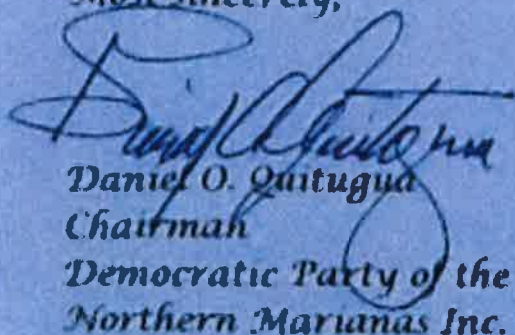 Most sincerely,
Daniel O. Quitugua
Chairman
Democratic Party of the
Northern Marianas Inc.